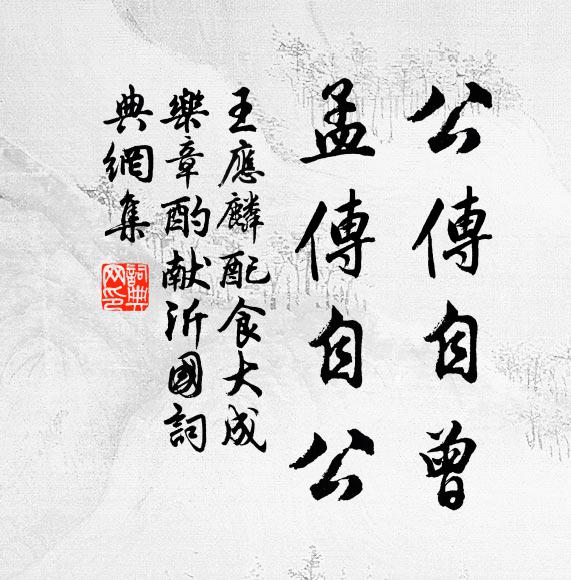 公傳自曾
孟傳自公
王應麟配食大成
樂章酌献沂國詞
典網集
詞典
网印